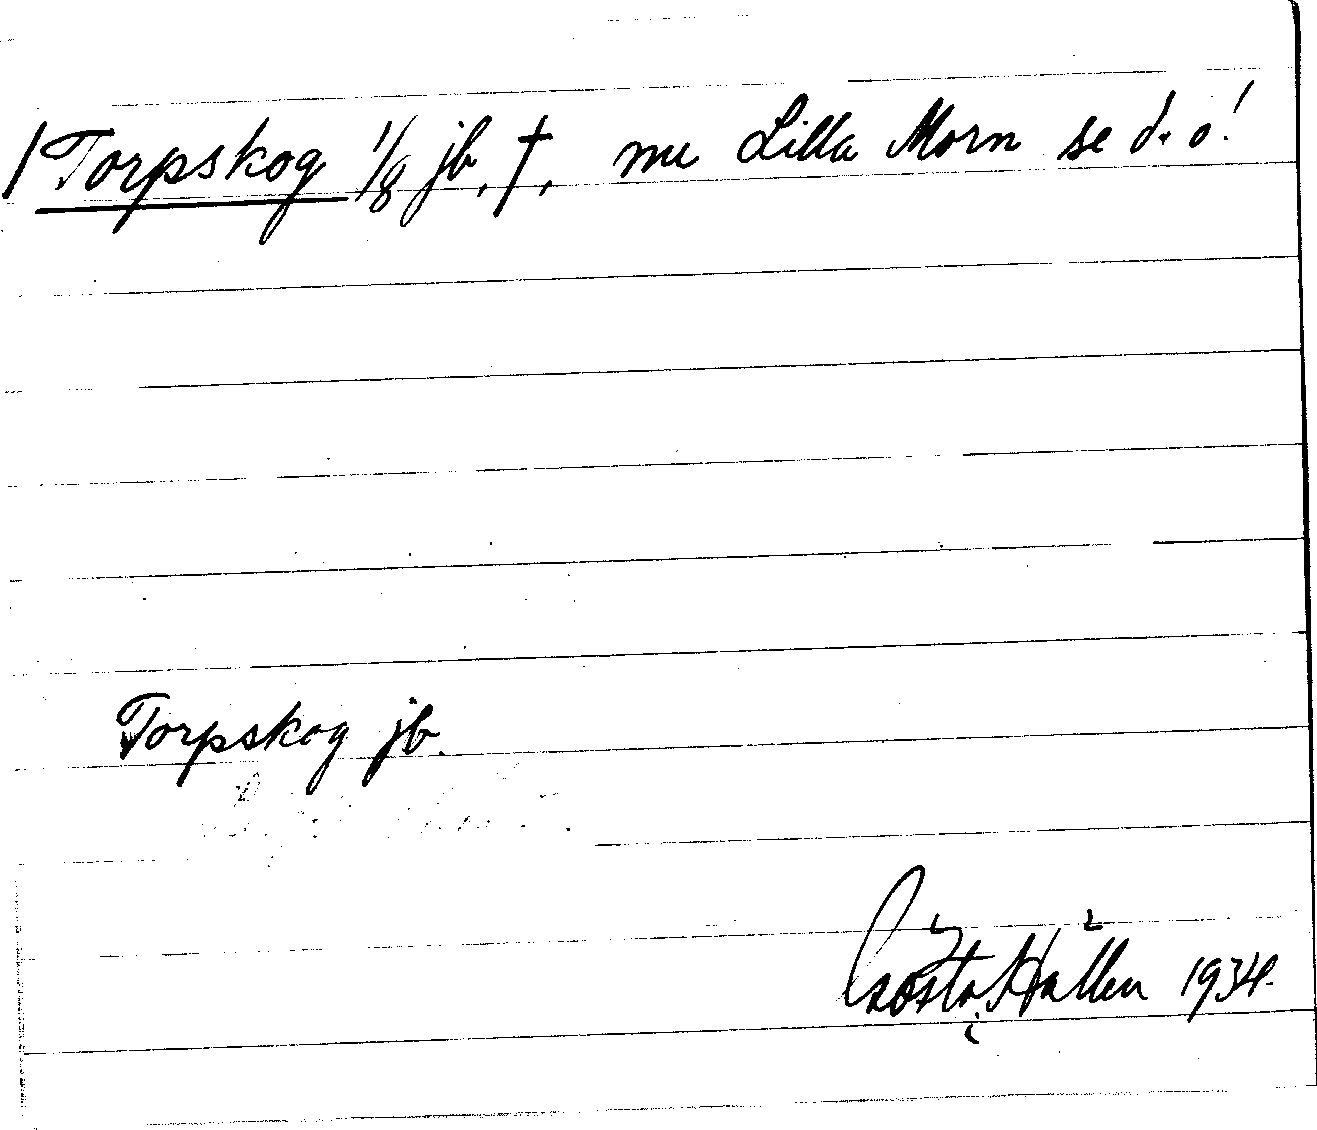 / Torpskog 1/8 jb, †, nu Lilla Morn se d. o!
Torpskog jb.
Gösta Hållen 1934.